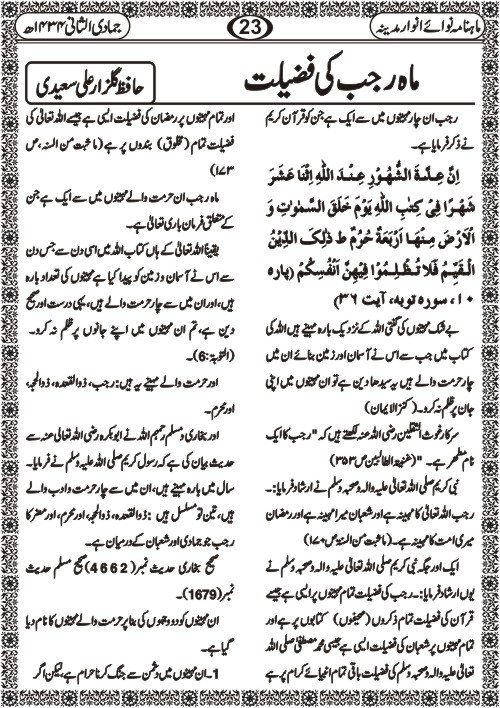 ماہنامہ نوائے انوار مدینہ
23
جمادی الثانی ۱۴۳۴ھ
ماہ رجب کی فضیلت
حافظ گلزار علی سعیدی
رجب ان چار مہینوں میں سے ایک ہے جن کو قرآن کریم
نے ذکر فرمایا ہے۔
اِنَّ عِدَّةَ الشُّهُوْرِ عِنْدَ اللّٰهِ اثْنَا عَشَرَ
شَهْرًا فِیْ كِتٰبِ اللّٰهِ یَوْمَ خَلَقَ السَّمٰوٰتِ وَ
الْاَرْضَ مِنْهَا اَرْبَعَةٌ حُرُمٌ ط ذٰلِكَ الدِّیْنُ
الْقَیِّمُ فَلَا تَظْلِمُوْا فِیْهِنَّ اَنْفُسَكُمْ (پارہ
۱۰، سورہ توبہ، آیت ۳۶)
بے شک مہینوں کی گنتی اللہ کے نزدیک بارہ مہینے ہیں اللہ کی
کتاب میں جب سے اس نے آسمان اور زمین بنائے ان میں
چار حرمت والے ہیں یہ سیدھا دین ہے تو ان مہینوں میں اپنی
جان پر ظلم نہ کرو۔ (کنز الایمان)
سرکار غوث الثقلین رضی اللہ عنہ لکھتے ہیں کہ "رجب کا ایک
نام مطہر ہے۔ "(غنیۃ الطالبین ص ۳۵۳)
نبی کریم صلی اللہ تعالیٰ علیہ والہ وصحبہ وسلم نے ارشاد فرمایا:۔
رجب اللہ تعالیٰ کا مہینہ ہے اور شعبان میرا مہینہ ہے اور رمضان
میری امت کا مہینہ ہے۔ (ما ثبت من السنہ ص ۱۷۰)
ایک اور جگہ نبی کریم صلی اللہ تعالیٰ علیہ والہ وصحبہ وسلم نے
یوں ارشاد فرمایا:۔ رجب کی فضیلت تمام مہینوں پر ایسی ہے جیسے
قرآن کی فضیلت تمام ذکروں (صحیفوں) کتابوں پر اور
تمام مہینوں پر شعبان کی فضیلت ایسی ہے جیسی محمد مصطفیٰ صلی اللہ
تعالیٰ علیہ والہ وصحبہ وسلم کی فضیلت باقی تمام انبیائے کرام پر ہے
اور تمام مہینوں پر رمضان کی فضیلت ایسی ہے جیسے اللہ تعالیٰ کی
فضیلت تمام (مخلوق) بندوں پر ہے (ما ثبت من السنہ، ص
۱۷۳)
ماہ رجب ان حرمت والے مہینوں میں سے ایک ہے جن
کے متعلق فرمان باری تعالیٰ ہے۔
یقیناً اللہ تعالیٰ کے ہاں کتاب اللہ میں اسی دن سے جس دن
سے اس نے آسمان و زمین کو پیدا کیا ہے مہینوں کی تعداد بارہ
ہیں، اور ان میں سے چار حرمت والے ہیں، یہی درست اور صحیح
دین ہے، تم ان مہینوں میں اپنے جانوں پر ظلم نہ کرو۔
(التوبۃ:6)۔
اور حرمت والے مہینے یہ ہیں: رجب، ذوالقعدہ، ذوالحجہ،
اور محرم۔
اور بخاری و مسلم رحمہم اللہ نے ابوبکرہ رضی اللہ تعالیٰ عنہ سے
حدیث بیان کی ہے کہ رسول کریم صلی اللہ علیہ وسلم نے فرمایا۔
سال میں بارہ مہینے ہیں، ان میں سے چار حرمت و ادب والے
ہیں، تین تو مسلسل ہیں: ذوالقعدہ، ذوالحجہ، اور محرم، اور مضر کا
رجب جو جمادی اور شعبان کے درمیان ہے۔
صحیح بخاری حدیث نمبر (4662) صحیح مسلم حدیث
نمبر (1679)۔
ان مہینوں کو دو وجوہوں کی بنا پر حرمت والے مہینوں کا نام دیا
گیا ہے۔
1۔ ان مہینوں میں دشمن سے جنگ کرنا حرام ہے، لیکن اگر